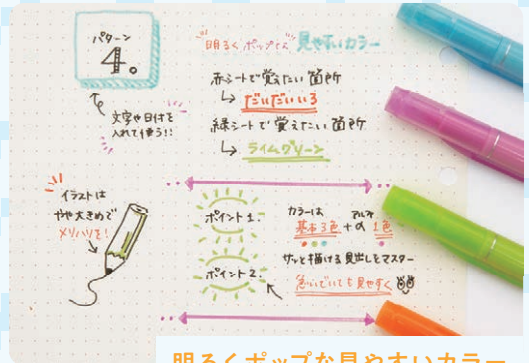 パターン
4。
文字や日付を
入れて使う!!
明るくポップな 見やすいカラー
赤シートで覚えたい箇所
↳ だいだいいろ
緑シートで覚えたい箇所
↳ ライムグリーン
イラストは
やや大きめで
メリハリを!
ポイント1.
カラーは
基本3色+α 1色
ポイント2.
サッと描ける見出しをマスター
急いでいても見やすく
明るくポップな見やすいカラー